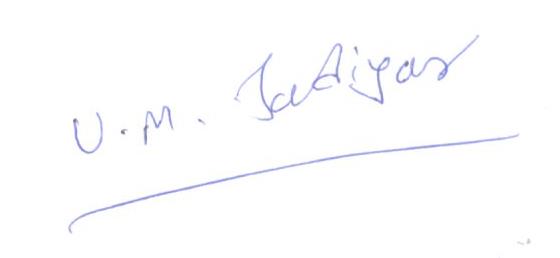 U.M. Jadiyar